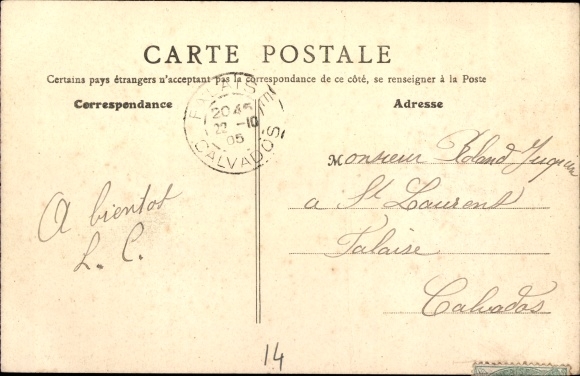 CARTE POSTALE
Certains pays étrangers n'acceptant pas la correspondance de ce côté, se renseigner à la Poste
Correspondance
Adresse
20 45
22 -10
05
CALVADOS
Monsieur Roland
a St Laurent
Falaise
Calvados
A bientot
L. C.
14